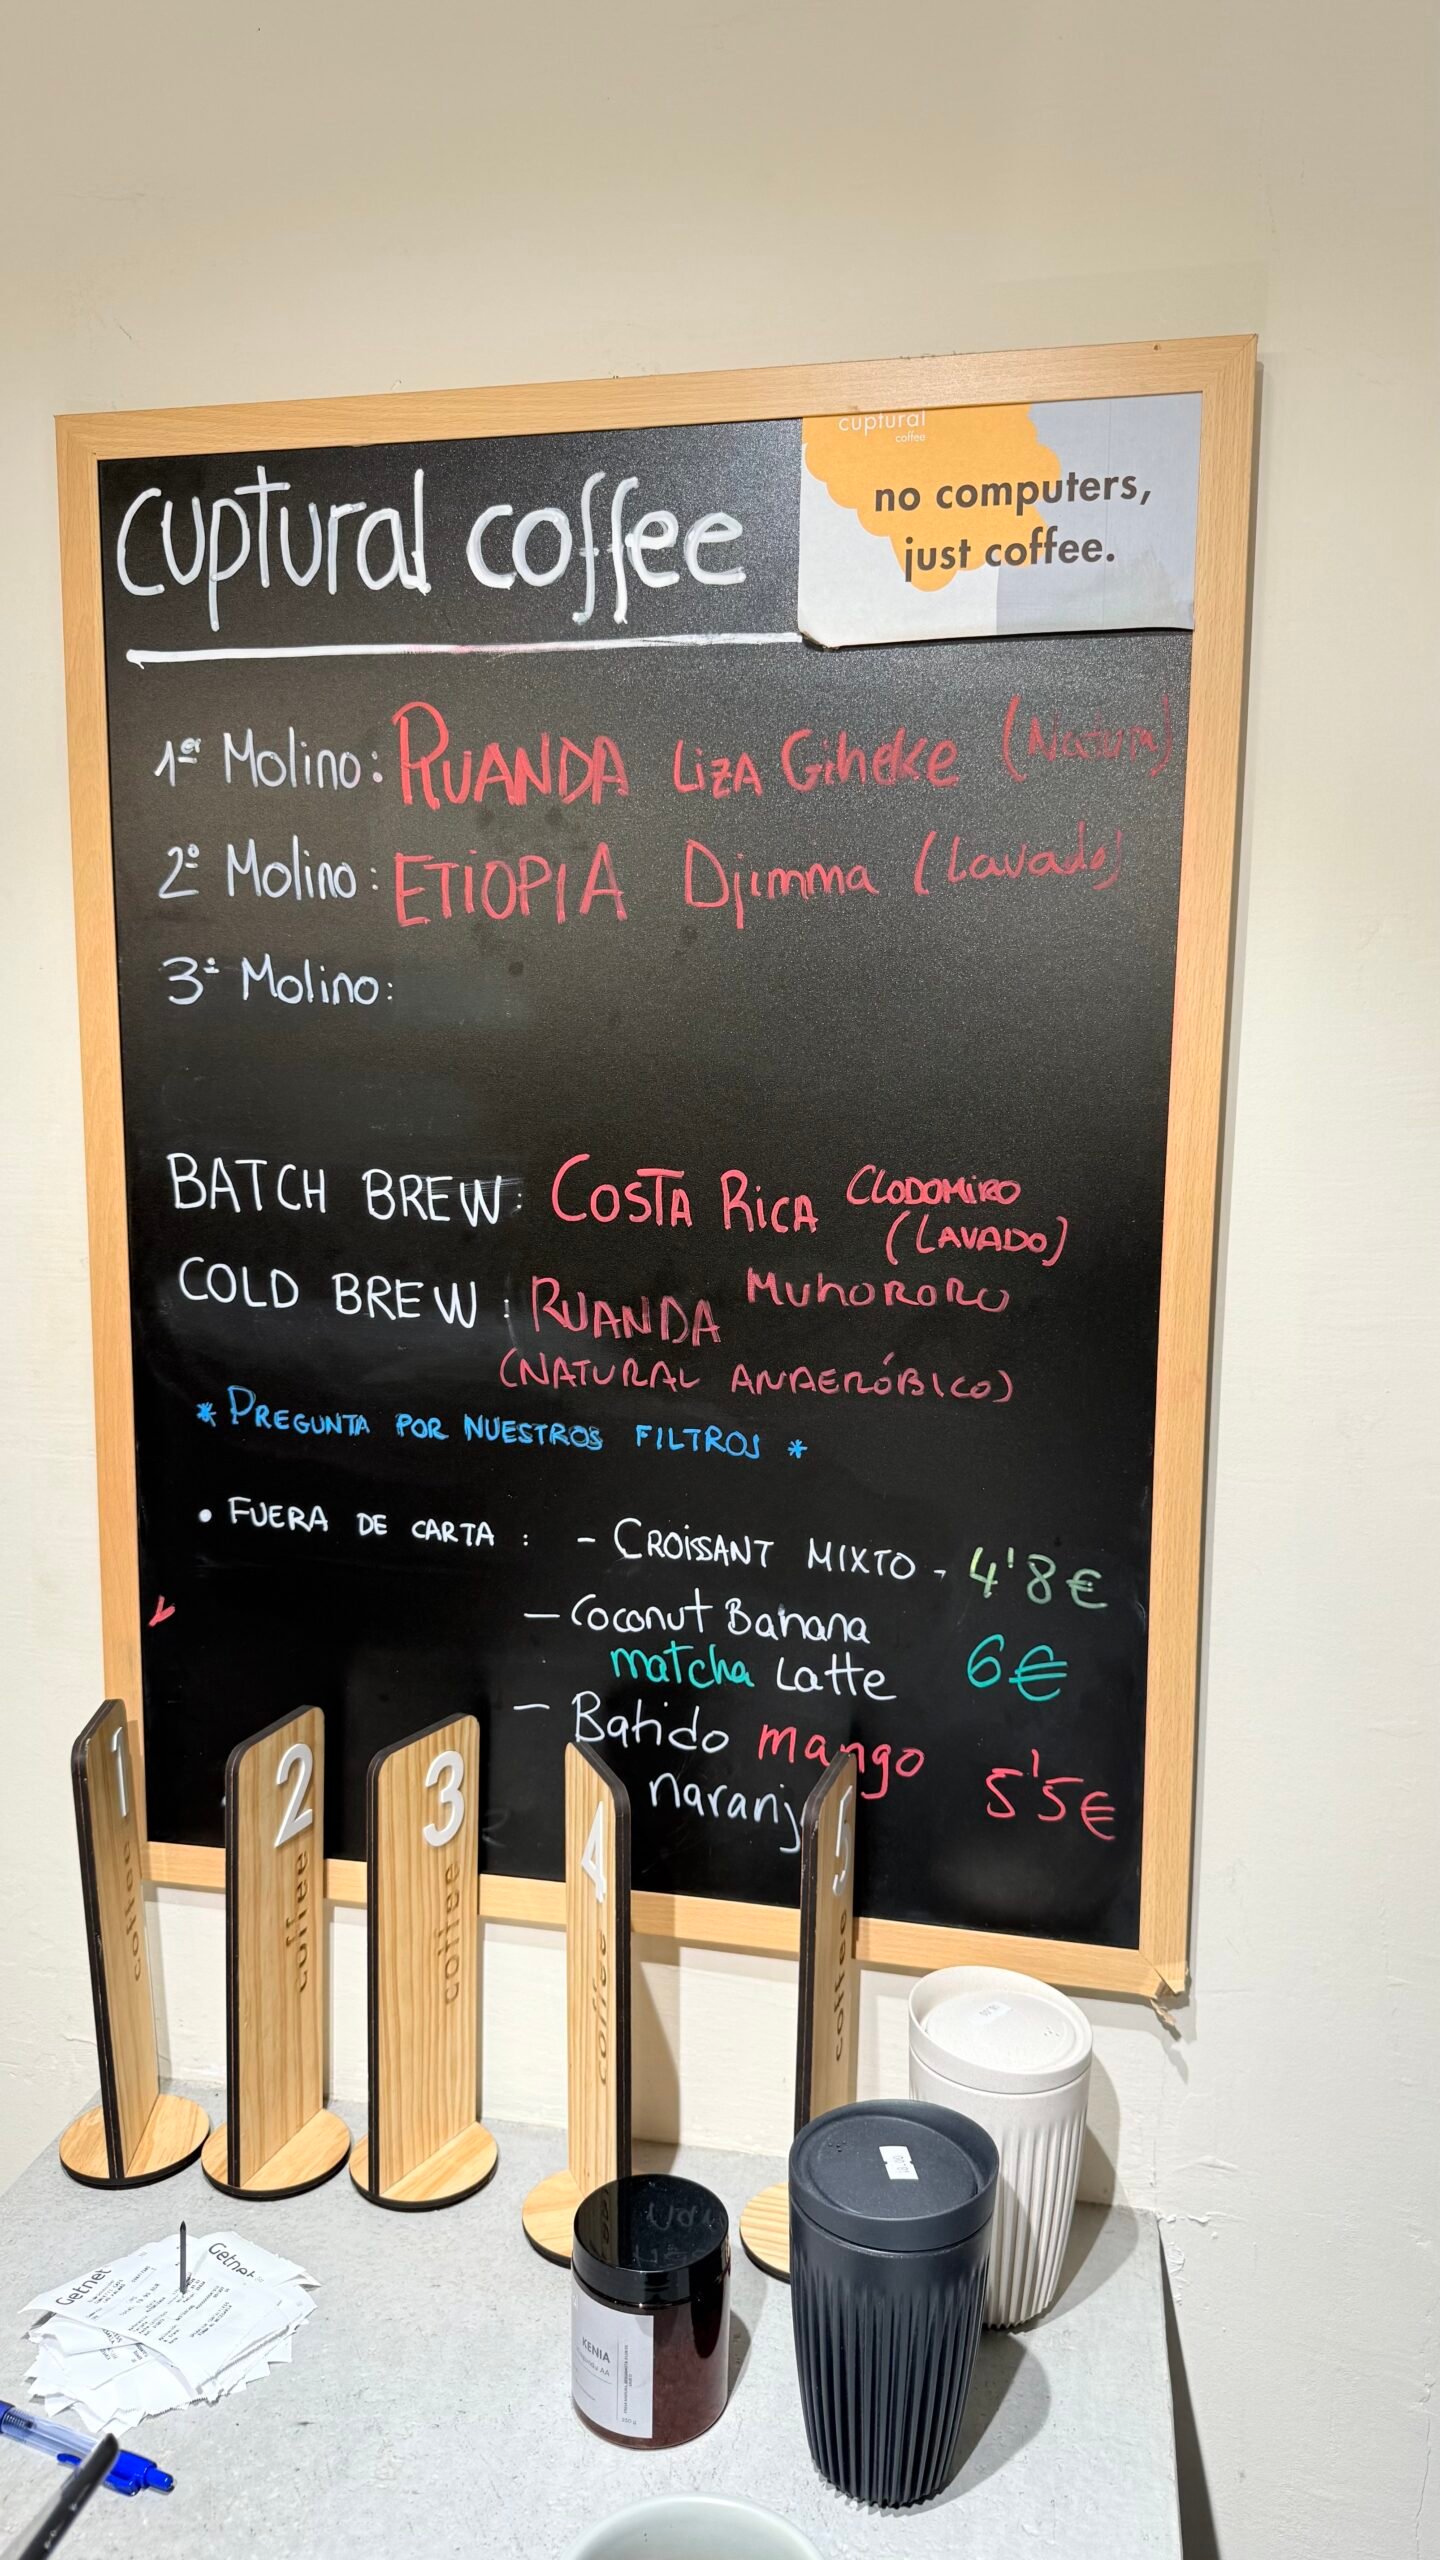 cuptural coffee
cuptural
coffee
no computers,
just coffee.
1er Molino: RUANDA LIZA Giheke (Natural)
2º Molino: ETIOPIA Djimma (Lavado)
3º Molino:
BATCH BREW: COSTA RICA CLODOMIRO
(LAVADO)
COLD BREW: RUANDA MUHORORO
(NATURAL ANAERÓBICO)
* PREGUNTA POR NUESTROS FILTROS *
• FUERA DE CARTA : - CROISSANT MIXTO - 4'8€
- Coconut Banana
matcha Latte 6€
- Batido mango
naranj 5'5€
1 coffee
2 coffee
3 coffee
4 coffee
5 coffee
Getnet
Getnet
KENIA
AA
250 g